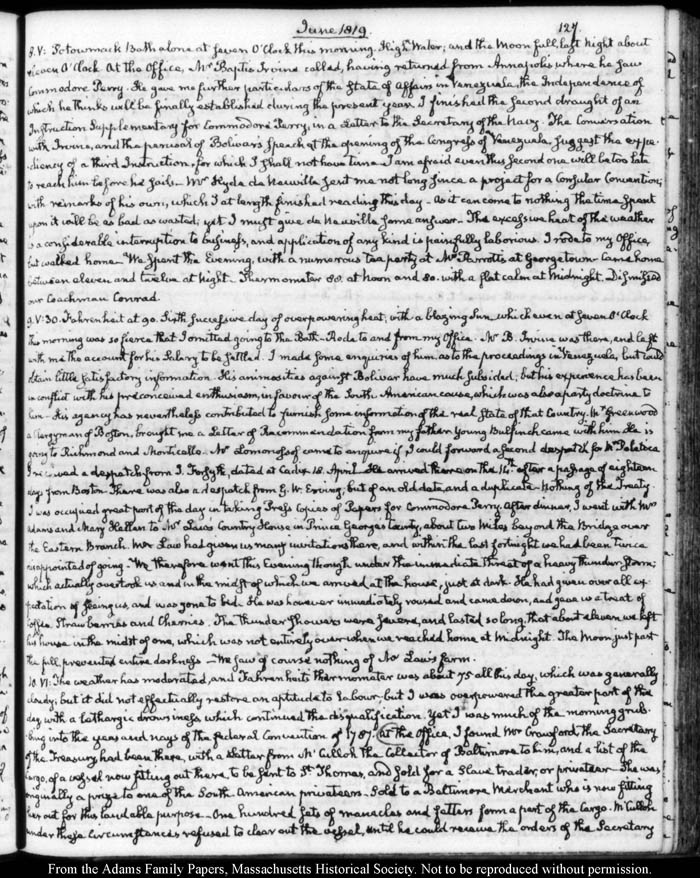 June 1819. 127.
8. V: Potowmack Bath alone at seven O'Clock this morning. High Water; and the Moon full last Night about
eleven O'Clock. At the Office, Mr Baptis Irvine called, having returned from Annapolis where he saw
Commodore Perry. He gave me further particulars of the State of Affairs in Venezuela, the Independence of
which he thinks will be finally established during the present year. I finished the second draught of an
Instruction Supplementary for Commodore Perry, in a Letter to the Secretary of the Navy. The Conversation
with Irvine, and the perusal of Bolivar's speech at the opening of the Congress of Venezuela, suggest the expe-
diency of a third Instruction, for which I shall not have time. I am afraid even this second one will be too late
to reach him before he sails. Mr Hyde de Neuville sent me not long since a project for a Consular Convention;
with remarks of his own, which I at length finished reading this day. As it can come to nothing the time spent
upon it will be as bad as wasted; yet I must give de Neuville some answer. The excessive heat of the weather
is a considerable interruption to business, and application of any kind is painfully laborious. I rode to my Office,
but walked home. We spent the Evening, with a numerous tea party at Mr Parrott's at Georgetown. Came home
between eleven and twelve at Night. Thermometer 88. at Noon and 80. with a flat calm at Midnight. Dismissed
our Coachman Conrad.
9. V:30. Fahrenheit at 90. Sixth successive day of overpowering heat, with a blazing Sun, which even at seven O'Clock
this morning was so fierce that I omitted going to the Bath. Rode to and from my Office. Mr B. Irvine was there, and left
with me the account for his Salary to be settled. I made some enquiries of him as to the proceedings in Venezuela, but could
obtain little satisfactory information. His animosities against Bolivar have much subsided; but his experience has been
in conflict with his preconceived enthusiasm, in favour of the South American cause, which was also a party doctrine to
him. His agency has nevertheless contributed to furnish some information of the real State of that Country. Mr Greenwood
a Clergyman of Boston, brought me a Letter of Recommendation from my father. Young Bulfinch came with him. He is
going to Richmond and Monticello. Mr Lomonosoff came to enquire if I could forward a second despatch for Mr Poletica.
I received a despatch from J. Forsyth, dated at Cadiz 18. April. He arrived there on the 16th after a passage of eighteen
days from Boston. There was also a despatch from G. W. Erving, but of an old date, and a duplicate. Nothing of the Treaty.
I was occupied great part of the day in taking Press Copies of Papers for Commodore Perry. After dinner, I went with Mrs
Adams and Mary Hellen to Mr Law's Country House in Prince Georges County, about two Miles beyond the Bridge over
the Eastern Branch. Mr Law had given us many invitations there, and within the last fortnight we had been twice
disappointed of going. We therefore went this Evening though under the immediate threat of a heavy thunder Storm;
which actually overtook us and in the midst of which we arrived at the house, just at dark. He had given over all ex-
pectation of seeing us, and was gone to bed. He was however immediately roused and came down, and gave us a treat of
Coffee, Strawberries and Cherries. The thunder showers were severe, and lasted so long, that about eleven we left
his house in the midst of one, which was not entirely over when we reached home at Midnight. The Moon just past
the full, prevented entire darkness. We saw of course nothing of Mr Law's farm.
10. VI: The weather has moderated, and Fahrenheit's thermometer was about 75 all this day, which was generally
cloudy; but it did not effectually restore an aptitude to Labour, but I was overpowered the greater part of the
day, with a lethargic drowsiness which continued the disqualification. Yet I was much of the morning grub-
bing into the yeas and nays of the federal Convention of 1787. At the Office, I found Mr Crawford, the Secretary
of the Treasury, had been there, with a Letter from McCulloh the Collector of Baltimore to him, and a list of the
Cargo, of a vessel now fitting out there, to be sent to St Thomas, and sold for a Slave trader, or privateer. She was
originally a prize to one of the South American privateers. Sold to a Baltimore Merchant who is now fitting
her out for this laudable purpose. One hundred sets of manacles and fetters form a part of the Cargo. McCulloh
under these Circumstances refused to clear out the vessel, until he could receive the orders of the Secretary
From the Adams Family Papers, Massachusetts Historical Society. Not to be reproduced without permission.